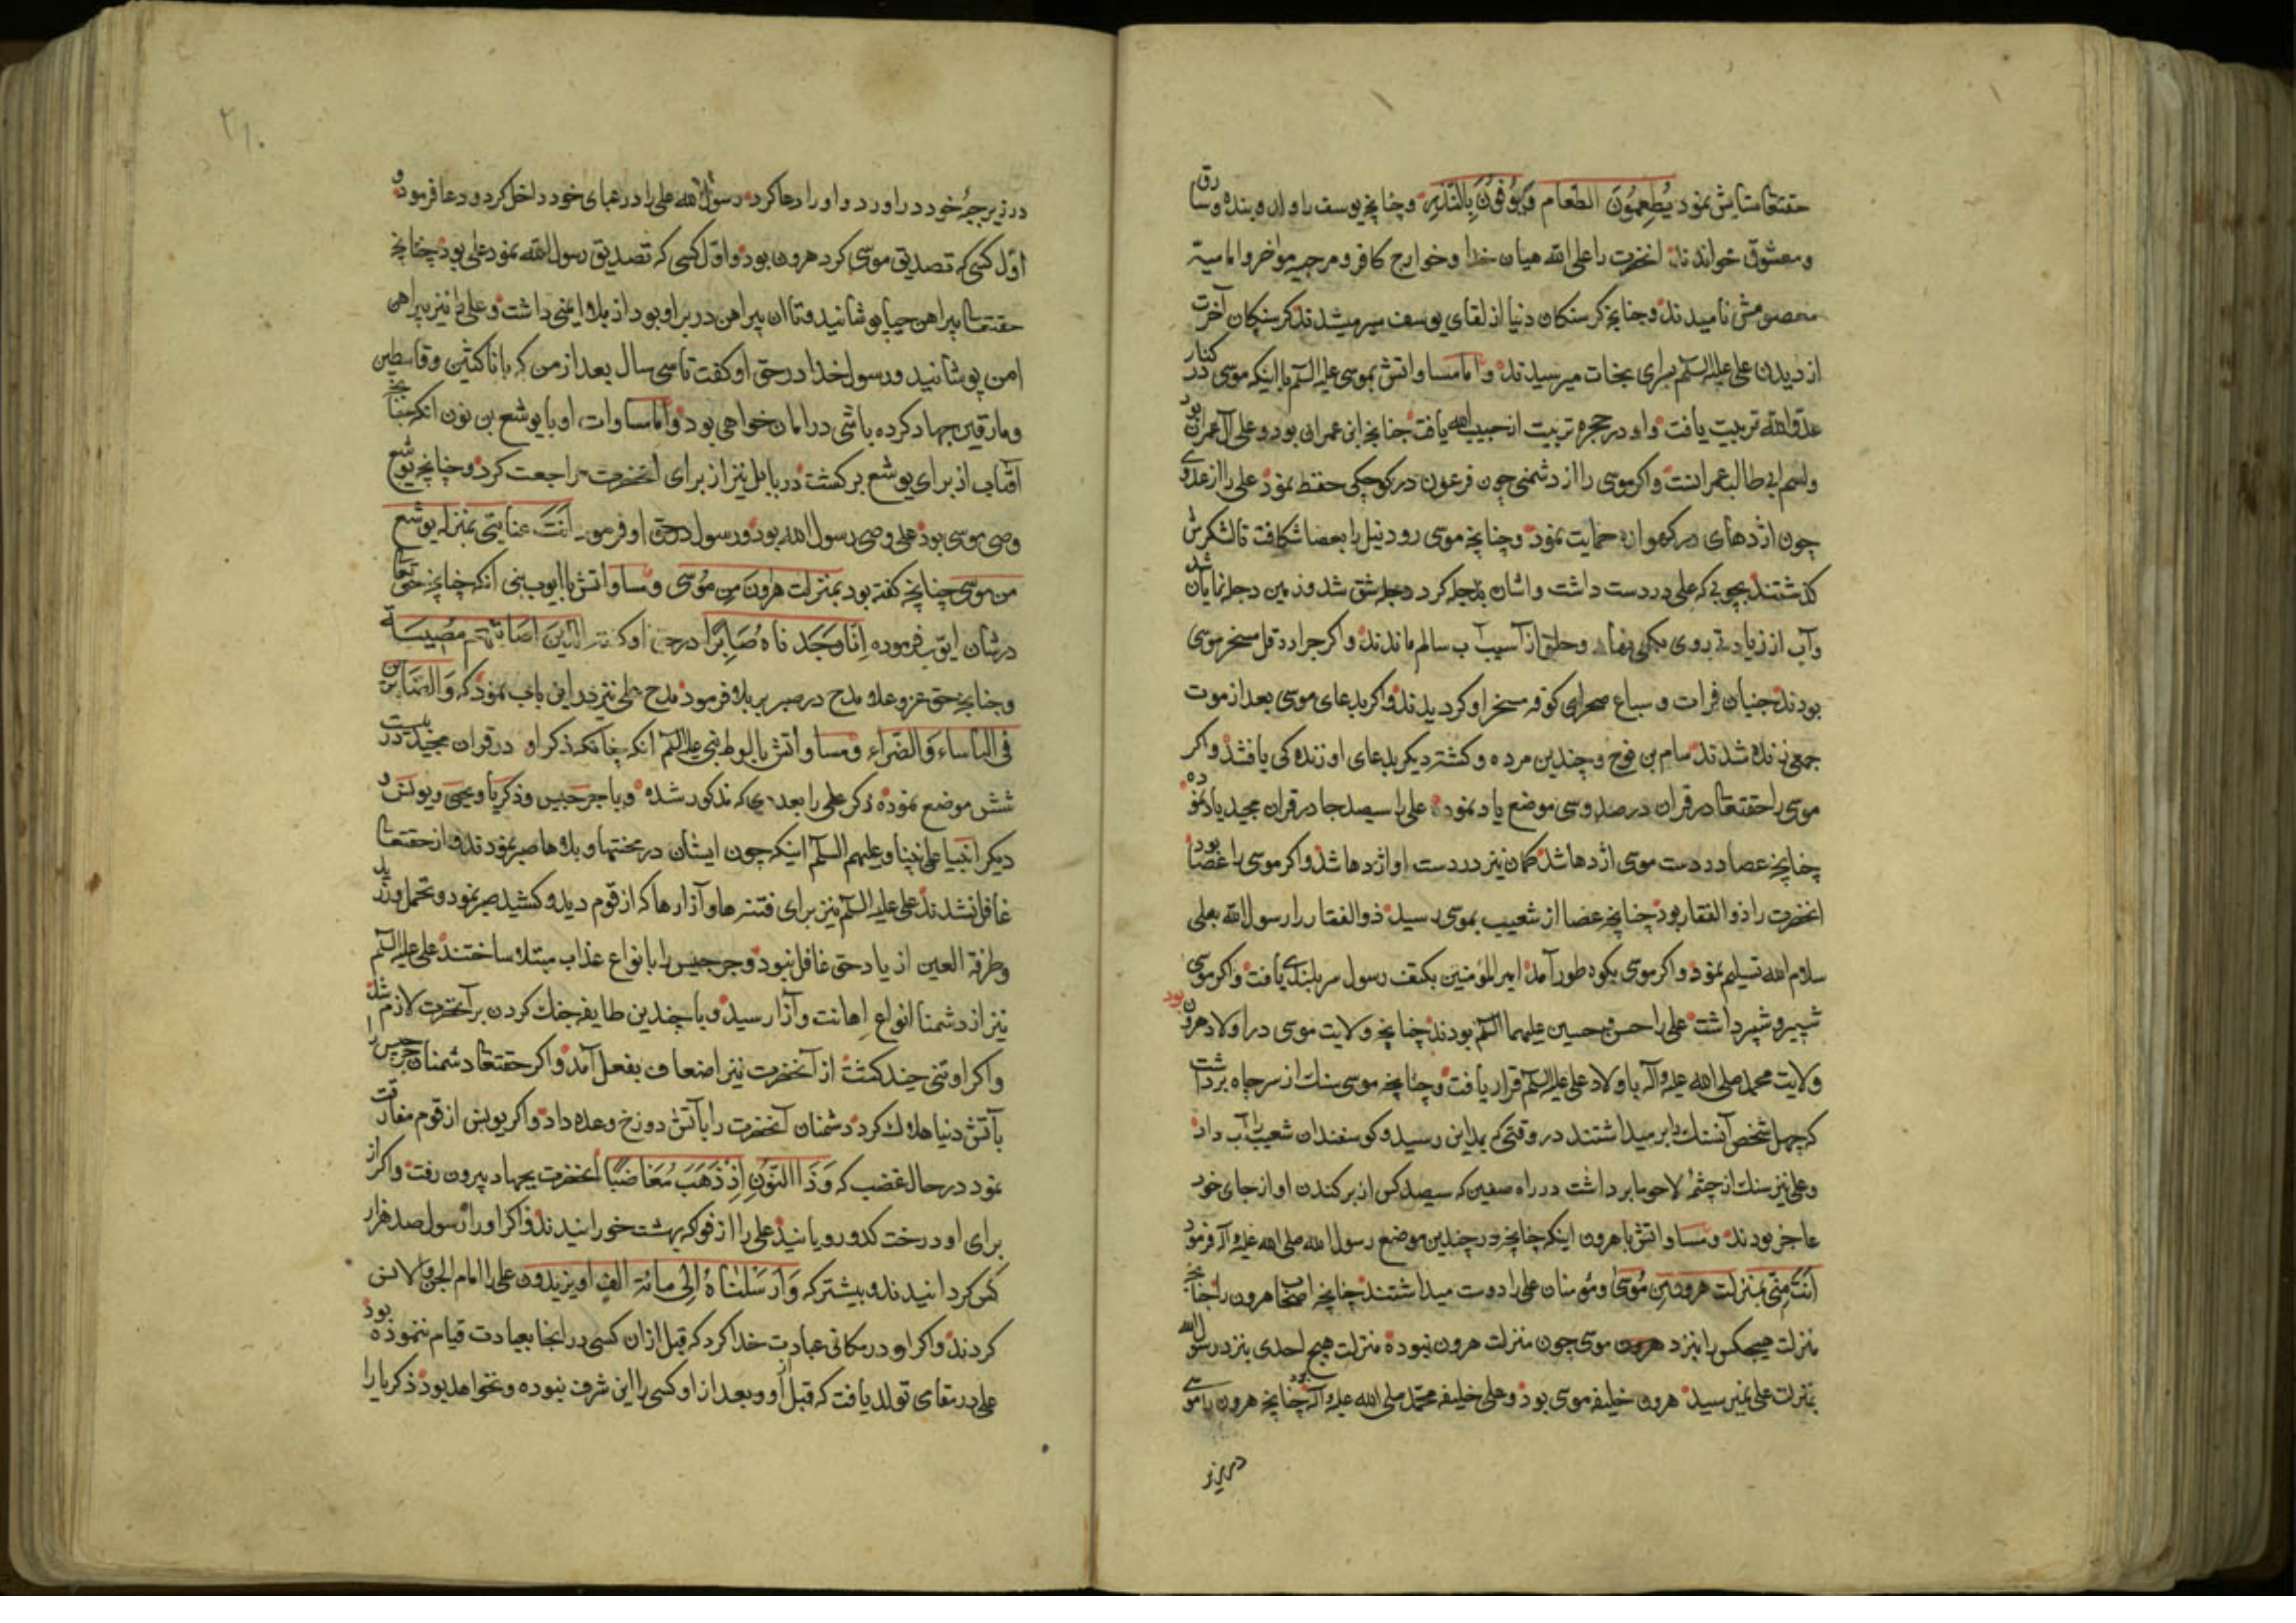 حقتعا ستایش نمود یُطعِمُونَ الطّعام وَیُوفُونَ بِالنَّذرِ وچنانچه یوسف را ولد و بنده وسارق
ومعشوق خواندند انحضرت را علی الله میان خدا وخوارج کافر ومرجیه مواخر وامامیّه
معصومش نامیدند وچنانچه کرسنکان دنیا از لقای یوسف سیر میشدند کرسنکان آخرت
از دیدن علی علیه السلم سرای نجات میرسیدند واما مساواتش بموسی علیه السلم با اینکه موسی در کنار
عدوالله تربیت یافت واو در حجره تربیت از حبیب الله یافت چنانچه ابن عمران بود وعلی آل عمران بود
واسم ابی طالب عمرانست واکر موسی را از دشمنی چون فرعون در کوچکی حفظ نمود علی را از عدوی
چون اژدهای در کهواره حمایت نمود وچنانچه موسی رود نیل را بعصا شکافت تا لشکرش
کذشتند بچوبی که علی در دست داشت واشان بدجله کرد دجله شق شد وزمین دجله نمایان شد
وآب از زیادتی روی بکمی نهاد وخلق از آسیب آب سالم ماندند واکر جراد وقمل مسخر موسی
بودند جنیان فرات وسباع صحرای کوفه مسخر او کردیدند واکر بدعای موسی بعد از موت
جمعی زنده شدند سام بن نوح وچندین مرده وکشته دیکر بدعای او زنده کی یافتند واکر
موسی را حقتعا در قران در صد وسی موضع یاد نموده علی را سیصد جا در قران مجید یاد نموده
چنانچه عصا در دست موسی اژدها شد کمان نیز در دست او اژدها شد واکر موسی را عصا بود
انحضرت را ذو الفقار بود چنانچه عصا از شعیب بموسی رسید ذو الفقار را رسول الله بعلی
سلام الله تسلیم نمود واکر موسی بکوه طور آمد امیر المؤمنین بکتف رسول سربلندی یافت واکر موسی
شبیر وشبر داشت علی را حسن وحسین علیهما السلم بودند چنانچه ولایت موسی در اولاد هرون بود
ولایت محمد صلی الله علیه وآله با اولاد علی علیه السلم قرار یافت وچنانچه موسی سنک از سر چاه برداشت
که چهل شخص آنسنک را بر میداشتند در وقتی که بمداین رسید وکوسفندان شعیب را آب داد
وعلی نیز سنک از چشمه لاحوما برداشت در راه صفین که سیصد کس از بر کندن او از جای خود
عاجز بودند ومساواتش با هرون اینکه چنانچه در چندین موضع رسول الله صلی الله علیه وآله فرمود
اَنتَ مِنّی بمنزلت هرون مِن مُوسَی ومؤمنان علی را دوست میداشتند چنانچه اصحاب هرون را چنانچه
منزلت هیچکس را بنزد هرون موسی چون منزلت هرون نبوده منزلت هیچ احدی بنزد رسول الله
بمنزلت علی نمیرسید هرون خلیفه موسی بود وعلی خلیفه محمد صلی الله علیه وآله چنانچه هرون با موسی
در زیر
۲۱۰
در زیر جبّه خود در اورد واو را دعا کرد رسول الله علی را در عبای خود داخل کرد ودعا فرمود و
اوّل کسی که تصدیق موسی کرد هرون بود واوّل کسی که تصدیق رسول الله نمود علی بود چنانچه
حقتعا پیراهن حیا پوشانید وتا ان پیراهن در بر او بود از بلا وایمنی داشت وعلی را نیز پیراهن
امن پوشانید ورسول خدا در حق او کفت تا سی سال بعد از من که با ناکثین وقاسطین
ومارقین جهاد کرده باشی در امان خواهی بود واما مساوات او با یوشع بن نون انکه چنانچه
آفتاب از برای یوشع برکشت در بابل نیز از برای انحضرت مراجعت کرد وچنانچه یوشع
وصی موسی بود علی وصی رسول الله بود ورسول در حق او فرمود اَنتَ منّی بمنزله یوشع
من موسی چنانچه کفته بود بمنزلت هارون مِن مُوسی ومساواتش با ایوب نبی انکه چنانچه حق تعا
در شان ایّوب فرموده اِنّا وَجَدناهُ صَابِرًا در حق او کفته الَّذینَ اَصَابَتهُم مُصِیبَةٌ
وچنانچه حق عزوعلا مدح در صبر بر بلا فرمود مدح علی نیز در این باب نمود که وَالصَّابِرین
فی البَأساءِ وَالضّرّاءِ ومساواتش با لوط نبی علیه السلم انکه چنانکه ذکر او در قران مجید در بیست
شش موضع نموده ذکر علی را بعددی که مذکور شده وبا جرجیس وذکریا ویحیی ویونس و
دیکر انبیا علی نبینا وعلیهم السلم اینکه چون ایشان در محنتها وبلاها صبر نمودند واز حقتعا
غافل نشدند علی علیه السلم نیز برای فتنه ها وآزارها که از قوم دید وکشید صبر نمود وتحمل ورزید
وطرفة العین از یاد حق غافل نبود وجرجیس را بانواع عذاب مبتلا ساختند علی علیه السلم
نیز از دشمنا انواع اهانت وآزار رسید وبا چندین طایفه جنک کردن بر آنحضرت لازم شد
واکر او تنی چند کشت از آنحضرت نیز اضعاف بفعل آمد واکر حقتعا دشمنان جرجیس را
بآتش دنیا هلاک کرد دشمنان آنحضرت را بآتش دوزخ وعده داد واکر یونس از قوم مفارقت
نمود در حال غضب که وَذَا النّونِ اِذ ذَهَبَ مُغَاضِبًا آنحضرت بجهاد بیرون رفت واکر از
برای او درخت کدو رویانید علی را از فواکه بهشت خورانیدند واکر او را رسول صد هزار
کس کردانیدند وبیشتر که وَاَرسَلناهُ اِلی مائة الفٍ اَو یزیدون علی را امام الجن والانس
کردند واکر او در مکانی عبادت خدا کرد که قبل از ان کسی در انجا بعبادت قیام ننموده بود
علی در مقامی تولد یافت که قبل از او وبعد از او کسی را این شرف نبوده ونخواهد بود ذکریا را